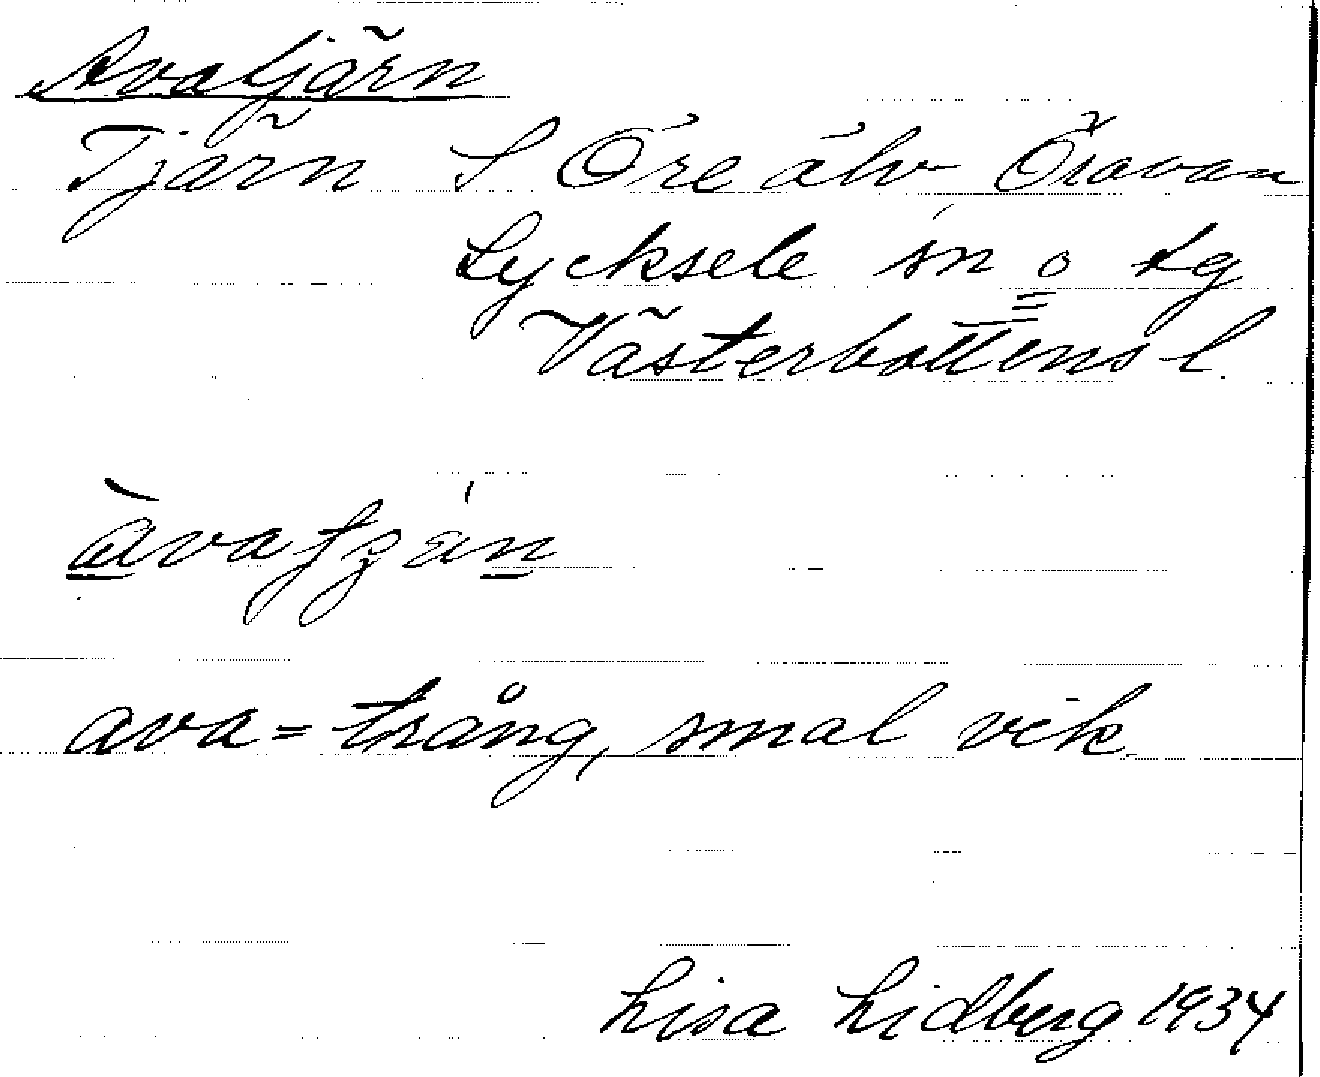 Avatjärn
Tjärn S Öre älv Öravan
Lycksele sn o tg
Västerbottens l.
àvatʒán
ava = trång, smal vik
Lisa Lidberg 1934